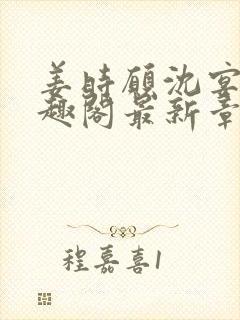 姜时愿沈宴
趣阁最新章
程嘉喜1